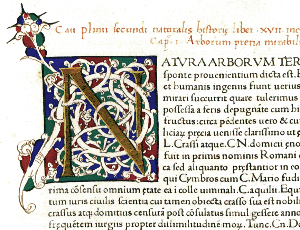 Caii plinii secundi naturalis historię liber .xvii. inc
Cap. i. Arborum precia mirabil
NATVRA ARBORVM TER
sponte prouenientium dicta est.
et humanis ingeniis fiunt uerius
mirari succurrit quare tulerimus
possessa a feris depugnante cum
fructus: circa pędotes uero & cu
liciaq; precia uenisse clarissimo ut
L. Crassi atque. CN. domicii
fuit in primis nominis Romani
ca sed aliquanto pręstantior in co
qui Cymbros cum C. Mario fudi
rima cōsensu omnium ętate ea i colle uiminali. C. aquilii. Equit
um iuris ciuilis scientia cui tamen obiecta crasso sua est
crassus atq; domitius censurā post cōsulatus simul gessere anno
frequętem iurgiis propter dissimilitudinē moꝝ. Tunc. Cn. Do